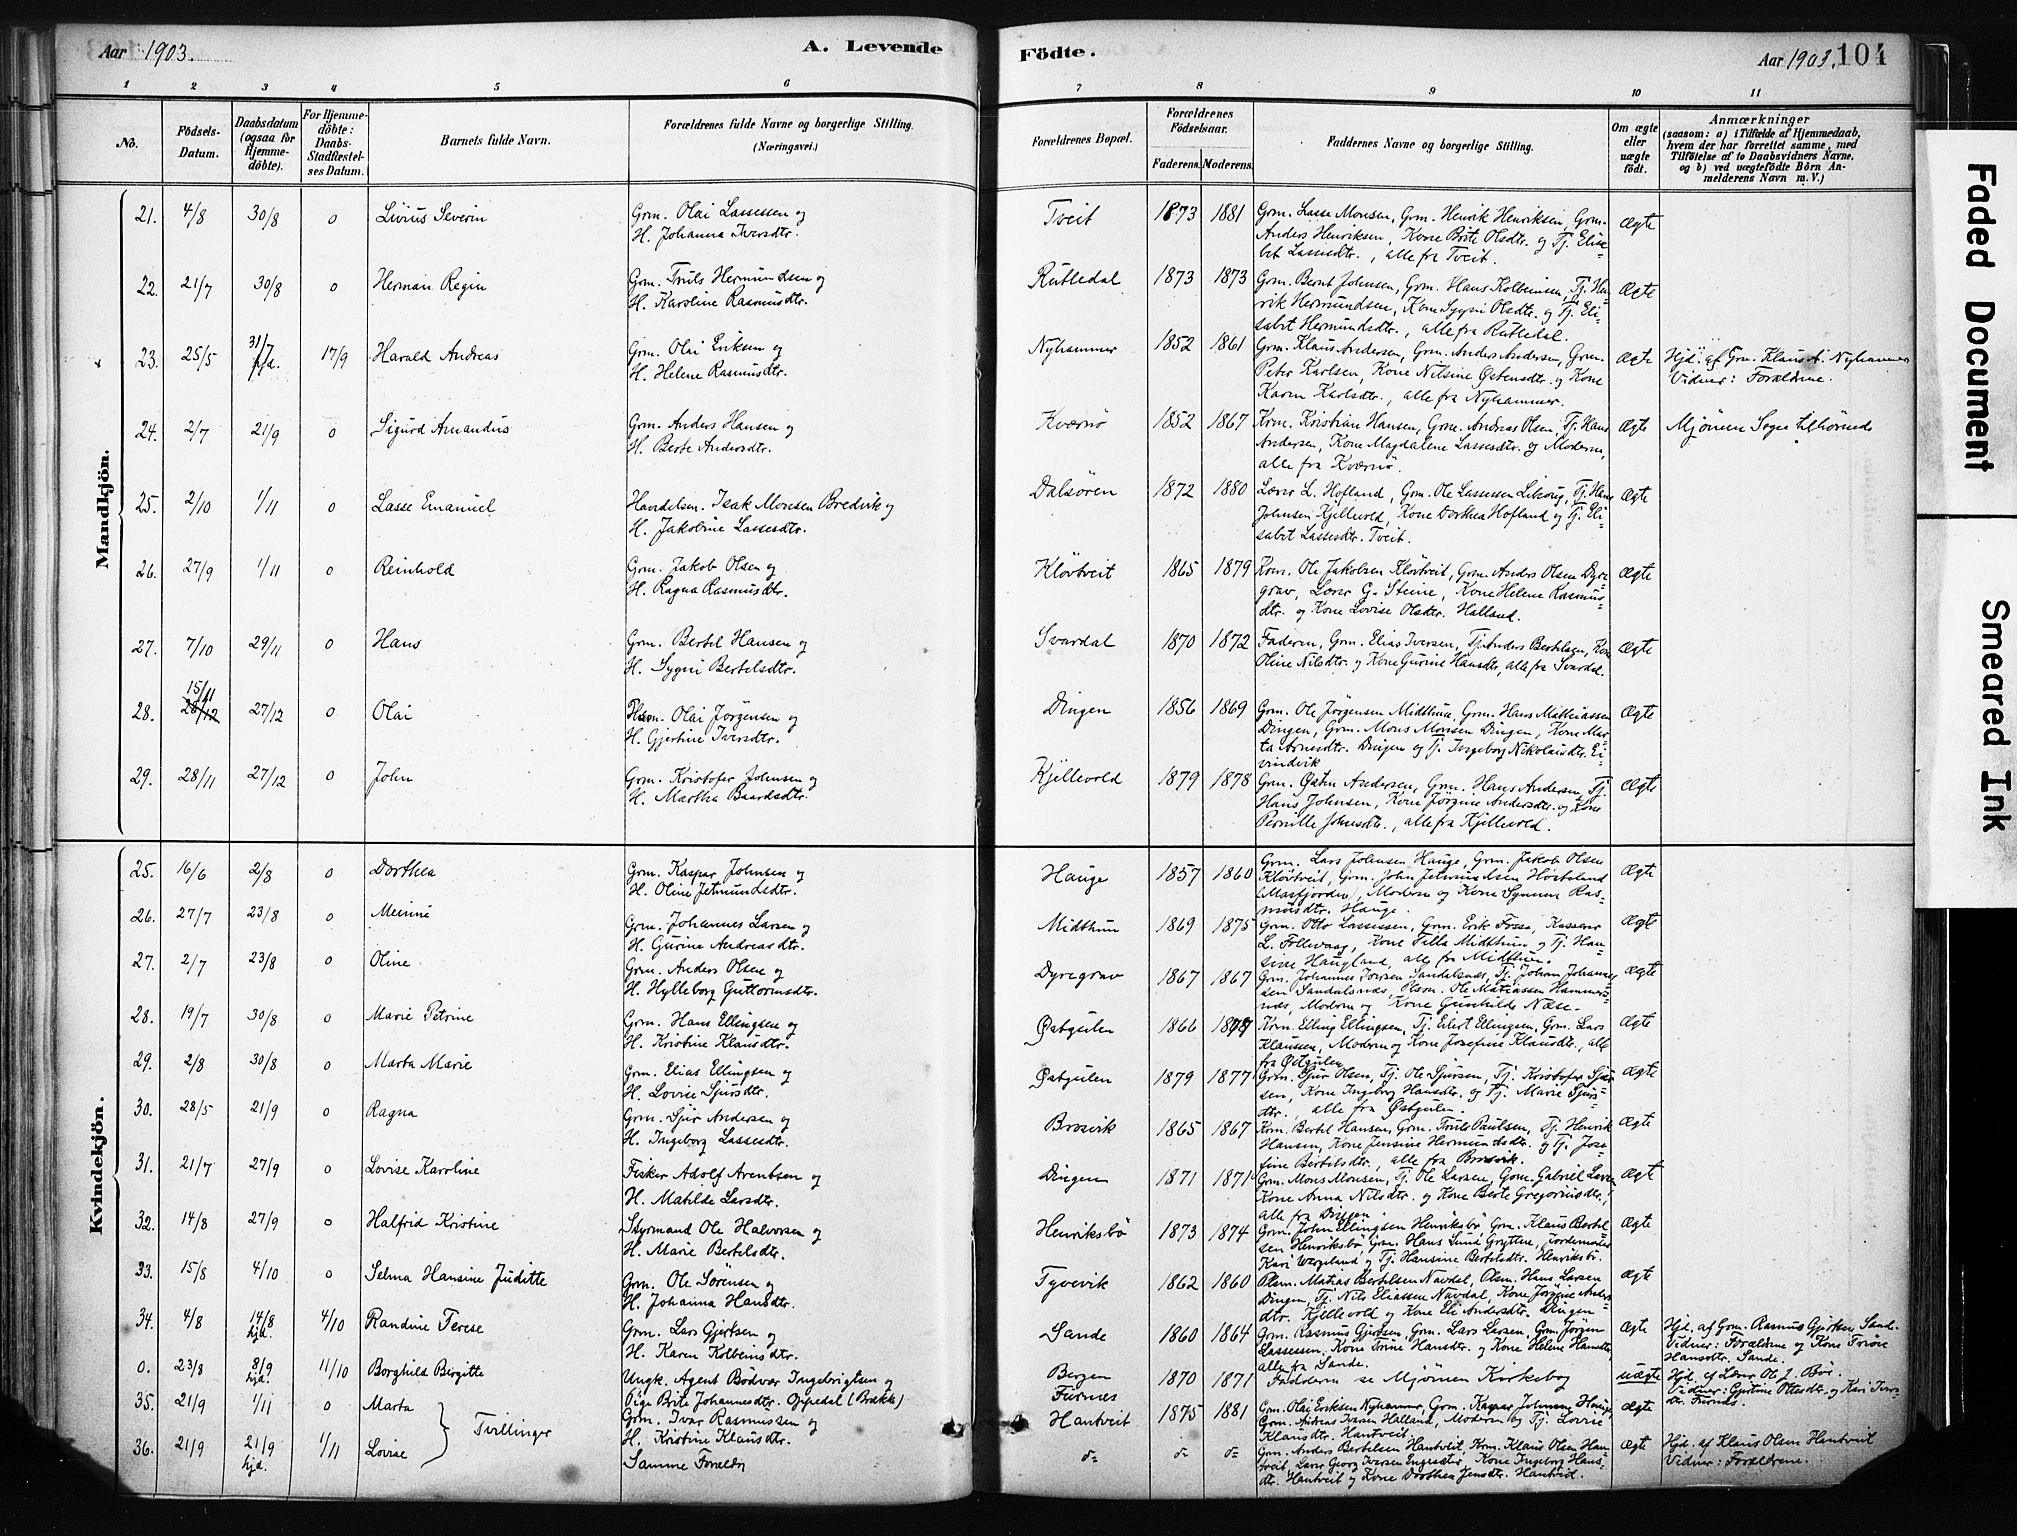 Aar 1903. A. Levende Födte. Aar 1903. 104
1 2 3 4 5 6 7 8 9 10 11
No. Födsels-Datum. Daabsdatum (ogsaa for Hjemmedöbte). For Hjemmedöbte: Daabs-Stadfæstelses Datum. Barnets fulde Navn. Forældrenes fulde Navne og borgerlige Stilling. (Næringsvei.) Forældrenes Bopæl. Forældrenes Födselsaar. Faderens. Moderens. Faddernes Navne og borgerlige Stilling. Om ægte eller uægte födt. Anmærkninger (saasom: a) i Tilfælde af Hjemmedaab, hvem der har forrettet samme, med Tilföielse af to Daabsvidners Navne, og b) ved uægtefödte Börn Anmelderens Navn m. V.)
Mandkjön.
21. 4/8 30/8 0 Livius Severin Grm. Olai Lassessen og Tveit 1873 1881 Grm. Lasse Monsen, Grm. Henrik Henriksen, Grm. Ægte
H. Johanna Iversdtr. Anders Henriksen, Kone Brite Olsdtr. og Tj. Elise-
bet Lassesdtr., alle fra Tveit.
22. 21/7 30/8 0 Herman Regin Grm. Truls Hermundsen og Rutledal 1873 1873 Grm. Bernt Johnsen, Grm. Hans Kolbeinsen, Tj. Hen- Ægte
H. Karoline Rasmusdtr. rik Hermundsen, Kone Sygni Olsdtr. og Tj. Eli-
sabet Hermundsdtr., alle fra Rutledal.
23. 25/5 31/7 hjd. 17/9 Harald Andreas Grm. Olai Eriksen og Nyhammer 1852 1861 Grm. Klaus Andersen, Grm. Anders Andersen, Grm. Ægte Hjd. af Grm. Klaus A. Nyhammer
H. Helene Rasmusdtr. Peter Karlsen, Kone Nilsine Østensdtr. og Kone Vidner: Forældrene.
Karen Karlsdtr., alle fra Nyhammer.
24. 2/7 21/9 0 Sigurd Amandus Grm. Anders Hansen og Kværnö 1852 1867 Krm. Kristian Hansen, Grm. Andreas Olsen, Tj. Hans Ægte Mjömen Sogn tilhörende
H. Berte Andersdtr. Andersen, Kone Magdalene Lassesdtr. og Moderen,
alle fra Kværnö.
25. 2/10 1/11 0 Lasse Emanuel Handelsm. Isak Monsen Bredvik og Dalsören 1872 1880 Lærer L. Hofland, Grm. Ole Lassessen, Tj. Hans Ægte
H. Jakobine Lassesdtr. Johnsen Kjellevold, Kone Dorthea Hofland og Tj. Eli-
sabet Lassesdtr. Tveit.
26. 27/9 1/11 0 Reinhold Grm. Jakob Olsen og Klövtveit 1865 1879 Krm. Ole Jakobsen Klövtveit, Grm. Anders Olsen Dyre- Ægte
H. Ragna Rasmusdtr. grav, Lærer G. Steine, Kone Helene Rasmus-
dtr. og Kone Lovise Olsdtr. Halland.
27. 7/10 29/11 0 Hans Grm. Bertel Hansen og Svardal 1870 1872 Faderen, Grm. Elias Iversen, Tj. Anders Bertelsen, Kone Ægte
H. Sygni Bertelsdtr. Oline Nilsdtr. og Kone Gurine Hansdtr., alle fra Svardal.
28. 15/11 28/12 27/12 0 Olai Plsm. Olai Jörgensen og Dingen 1856 1869 Grm. Ole Jörgensen Midthun, Grm. Hans Mathiassen Ægte
H. Gjertine Iversdtr. Dingen, Grm. Mons Monsen Dingen, Kone Mar-
ta Arnesdtr. Dingen og Tj. Ingeborg Nikolaidtr. Ei-
vindvik
29. 28/11 27/12 0 John Grm. Kristofer Johnsen og Kjellevold 1879 1878 Grm. Østen Andersen, Grm. Hans Andersen, Tj. Ægte
H. Martha Baardsdtr. Hans Johnsen, Kone Jörgine Andersdtr. og Kone
Pernille Johnsdtr., alle fra Kjellevold.
Kvindekjön.
25. 16/6 2/8 0 Dorthea Grm. Kaspar Johnsen og Hauge 1857 1860 Grm. Lars Johnsen Hauge, Grm. Jakob Olsen Ægte
H. Oline Jetmundsdtr. Klövtveit, Grm. John Jetmundsen Hosteland
(Masfjorden), Moderen og Kone Synneve Ras-
musdtr. Hauge.
26. 27/7 23/8 0 Minni Grm. Johannes Larsen og Midthun 1869 1875 Grm. Otto Lassessen, Grm. Erik Fosse, Kasserer Ægte
H. Gurine Andreasdtr. L. Follevaag, Kone Filla Midthun og Tj. Han-
sine Haugland, alle fra Midthun.
27. 2/7 23/8 0 Oline Grm. Anders Olsen og Dyregrav 1867 1867 Grm. Johannes Iversen Sandalsnes, Tj. Johan Johannes- Ægte
H. Hylleborg Guttormsdtr. sen Sandalsnæs, Plsm. Ole Matiassen Hammers-
næs, Moderen og Kone Gunhilde Næse.
28. 19/7 30/8 0 Marie Petrine Grm. Hans Ellingsen og Østgulen 1866 Krm. Elling Ellingsen, Tj. Eilert Ellingsen, Grm. Lars Ægte
H. Kristine Klausdtr. Klaussen, Moderen og Kone Josefine Klausdtr., alle
fra Østgulen
29. 2/8 30/8 0 Marta Marie Grm. Elias Ellingsen og Østgulen 1879 1877 Grm. Sjur Olsen, Tj. Ole Sjursen, Tj. Kristofer Sjur- Ægte
H. Lovise Sjursdtr. sen, Kone Ingeborg Hansdtr. og Tj. Marie Sjurs-
dtr., alle fra Østgulen.
30. 28/5 21/9 0 Ragna Grm. Sjur Andersen og Brosvik 1865 1867 Krm. Bertel Hansen, Grm. Truls Paulsen, Tj. Henrik Ægte
H. Ingeborg Lassesdtr. Hansen, Kone Jensine Hermundsdtr. og Tj. Jose-
fine Bertelsdtr., alle fra Brosvik.
31. 21/7 27/9 0 Lovise Karoline Fisker Adolf Arentsen og Dingen 1871 1871 Grm. Mons Monsen, Tj. Ole Larsen, Grm. Gabriel Larsen Ægte
H. Matilde Larsdtr. Kone Anna Nilsdtr. og Kone Berte Gregoriusdtr.,
alle fra Dingen
32. 14/8 27/9 0 Halfrid Kristine Styrmand Ole Halvorsen og Henriksbö 1873 1874 Grm. John Ellingsen Henriksbö, Grm. Klaus Bertel- Ægte
H. Marie Bertelsdtr. sen Henriksbö, Grm. Hans Lund Gryttene, Jordemoder
Kari Wergeland og Tj. Hansine Bertelsdtr. Henriksbö.
33. 15/8 4/10 0 Selma Hansine Juditte Grm. Ole Sörensen og Tyvevik 1862 1860 Plsm. Matias Bertelsen Navdal, Plsm. Hans Larsen Ægte
H. Johanna Hansdtr. Dingen, Tj. Nils Eliassen Navdal, Kone Jörgine Anders-
dtr. Kjellevold og Kone Eli Andersdtr. Dingen
34. 4/8 14/8 hjd. 4/10 Randine Terese Grm. Lars Gjertsen og Sande 1860 1864 Grm. Rasmus Gjertsen, Grm. Lars Larsen, Grm. Jörgen Ægte Hjd. af Grm. Rasmus Gjertsen Sande.
H. Karen Kolbeinsdtr. Lassessen, Kone Trine Hansdtr. og Kone Helene Hansdtr., Vidner: Forældrene og Kone Trine
alle fra Sande. Hansdtr. Sande.
0. 23/8 8/9 hjd. 11/10 Borghild Birgitte Ungk. Agent Bödvar Ingebrigtsen og Bergen 1870 1871 Faddern se Mjömen Kirkebog uægte Hjd. af Lærer O. J. Böe.
Pige Brite Johannesdtr. Opedal (Brække) Furnes Vidner: Gjertine Ottesdtr. og Kari Ivers-
dtr. Furnes.
35. 21/9 1/11 0 Marta Tvillinger Grm. Ivar Rasmussen og Hantveit 1875 1881 Grm. Olai Eriksen Nyhammer, Grm. Kaspar Johnsen Hauge, Ægte
H. Kristine Klausdtr. Grm. Andreas Iversen Halland, Moderen og Tj. Lovise
Klausdtr. Hantveit.
36. 21/9 21/9 hjd. 1/11 Lovise Samme Forældre Grm. Anders Bertelsen Hantveit, Krm. Klaus Olsen Han- Ægte Hjd. af Klaus Olsen Hantveit
tveit, Lærer Georg Iversen Engesæter, Kone Ingeborg Hans- Vidner: Forældrene.
dtr. Hantveit og Kone Dorthea Jensdtr. Hantveit.
Faded Document
Smeared Ink